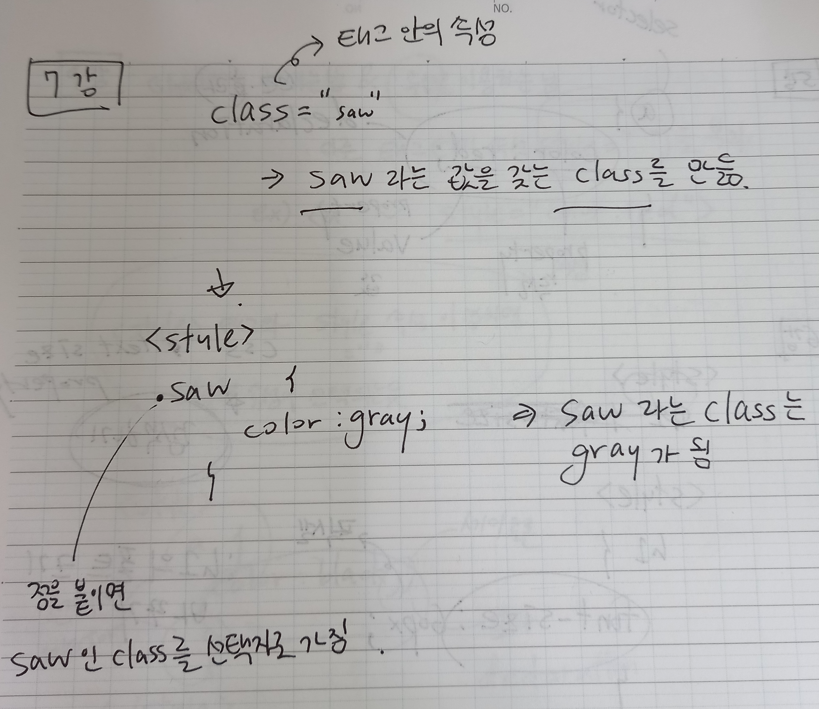 NO.
태그 안의 속성
7강
class = "saw"
→ saw 라는 값을 갖는 class를 만듦.
↓
<style>
.saw {
color : gray; ⇒ saw 라는 class는
gray가 됨
}
점을 붙이면
saw인 class를 선택자로 가짐.